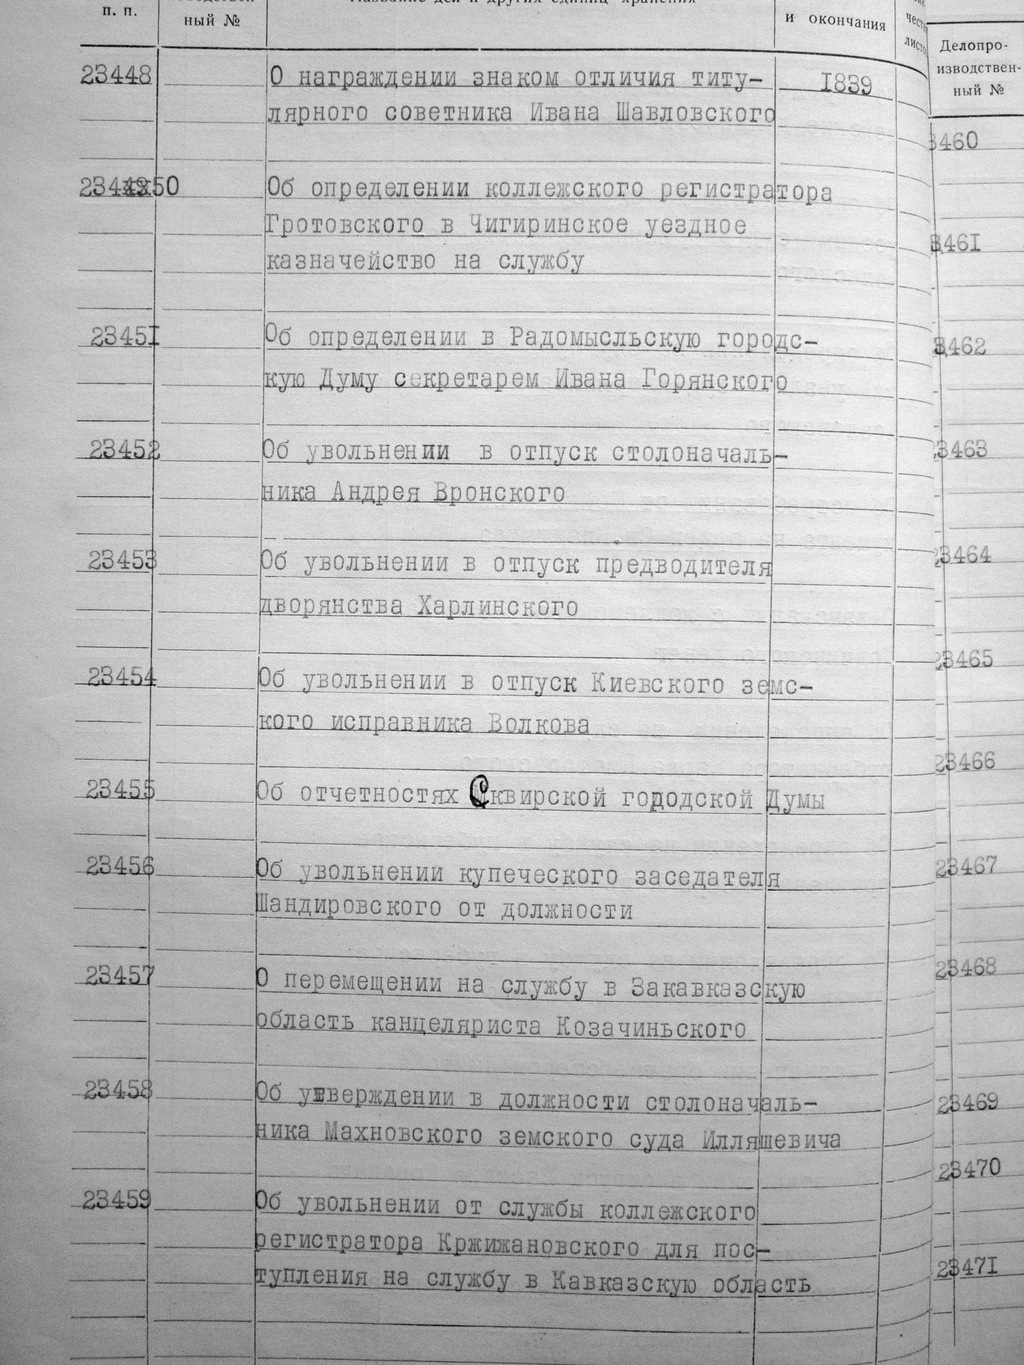 п. п.
ный №
и окончания
23448 О награждении знаком отличия титу- 1839
лярного советника Ивана Шавловского
50 Об определении коллежского регистратора
Гротовского в Чигиринское уездное
казначейство на службу
23451 Об определении в Радомысльскую городс-
кую Думу секретарем Ивана Горянского
23452 Об увольнении в отпуск столоначаль-
ника Андрея Вронского
23453 Об увольнении в отпуск предводителя
дворянства Харлинского
23454 Об увольнении в отпуск Киевского земс-
кого исправника Волкова
23455 Об отчетностях Сквирской городской Думы
23456 Об увольнении купеческого заседателя
Шандировского от должности
23457 О перемещении на службу в Закавказскую
область канцеляриста Козачиньского
23458 Об утверждении в должности столоначаль-
ника Махновского земского суда Илляшевича
23459 Об увольнении от службы коллежского
регистратора Кржижановского для пос-
тупления на службу в Кавказскую область
Делопро-
изводствен-
ный №
3460
3461
3462
23463
23464
23465
23466
23467
23468
23469
23470
23471